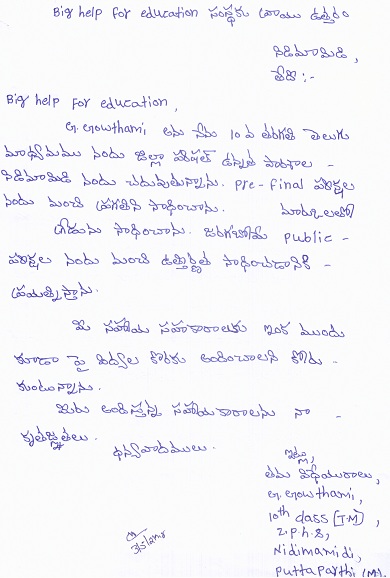 Big help for education సంస్థకు రాయు ఉత్తరం
నిడిమామిడి,
తేది :-
Big help for education,
G. Gowthami, అను నేను 10 వ తరగతి తెలుగు
మాధ్యమము నందు జిల్లా పరిషత్ ఉన్నత పాఠశాల -
నిడిమామిడి నందు చదువుతున్నాను. pre-final పరీక్షల
నందు మంచి ప్రగతిని సాధించాను. మార్కులతో
గ్రేడును సాధించాను. జరగబోయే public -
పరీక్షల నందు మంచి ఉత్తీర్ణత సాధించడానికి -
ప్రయత్నిస్తాను.
మీ సహాయ సహకారాలకు ఇంక ముందు
కూడా పై విద్యల కొరకు అందించాలని కోరు -
కుంటున్నాను.
మీరు అందిస్తున్న సహాయకారాలను నా -
కృతజ్ఞతలు.
ధన్యవాదములు.
ఇట్లు,
తమ విధేయురాలు,
G. Gowthami,
10th class [T.M],
Z.P.H.S,
Nidimamidi,
puttaparthi (M).